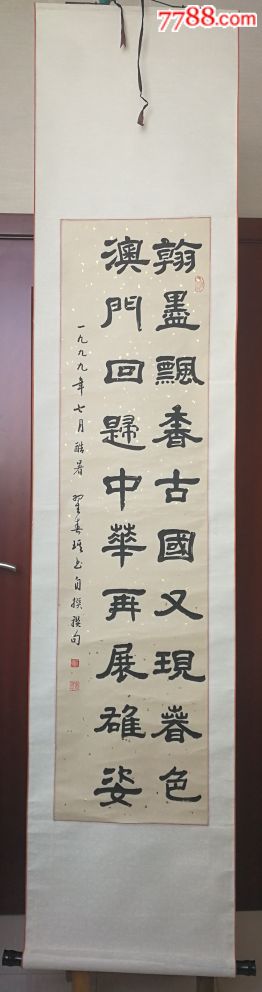 7788.com
翰墨飄香古國又現春色
澳門回歸中華再展雄姿
一九九九年七月酷暑 翟春瑾书自撰联句